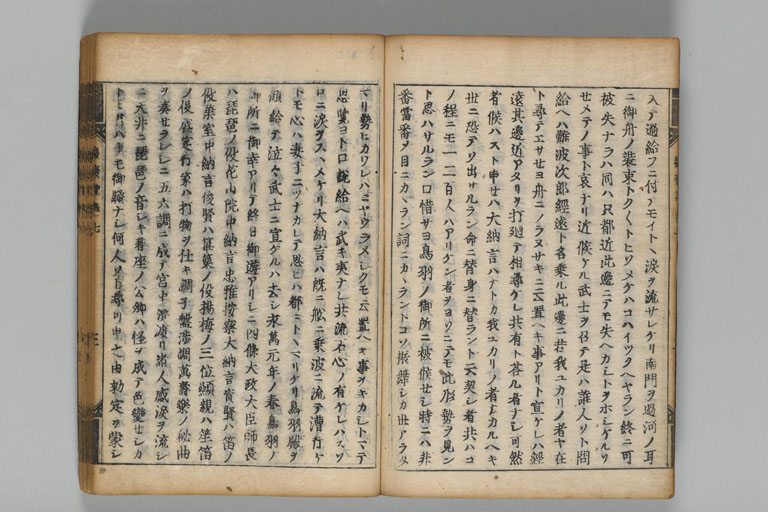 入テ過給フニ付テモイトヘ涙ヲ流サレケリ南門ヲ過河ノ耳
ニ御舟ノ装束トクトヒソメケハコハイツクヘヤラン終ニ可
被失ナラハ同ハ只都近此邊ニテモ失ヘカシトヲホシケルソ
セメテノ事ト哀ナリ近候アル武士ヲ召テ是ハ誰人ソト問
給ヘハ難波次郎経遠ト名乗ル此邊ニ若我ユカリノ者ヤ在
ト尋テエサセヨ舟ニノラヌサキニ云置ヘキ事アリト宣ケレハ経
遠其邊近アタリヲ打廻テ相尋ケレ共有ト答ル者ナシ可然
者候ハスト申セハ大納言ハナトカ我ユカリノ者ナカルヘキ
世ニ恐テソ出サルラン命ニ替身ニ替ラント云契シ者共ハコ
ノ程ニモ一二百人ハアリケン者ヲヨソニテモ此形勢ヲ見ン
ト思ハサルラン口惜サヨ鳥羽ノ御所ニ被候セシ特ニハ非
番當番ノ目ニカヽラン詞ニカヽラントコソ振舞シカ世アラタ
マリ勢ヒカワレハミヤウラメシクモ云置ヘキ事ヲキカシトマテ
思覧ヨト口説給ヘハ武キ夷ナレ共流石心ノ有ケレハスヽ
ロニ涙ヲスヽメケリ大納言ハ既ニ船ニ乗波ニ流テ漕行ケ
トモ心ハ妻子ニツナカレテ思ヒハ都ニトヽマリケリ鳥羽殿ヲ
顧給テ泣々武士ニ宣ケルハ去シ永萬元年ノ春鳥羽ノ
御所ニ御幸アリテ終日御遊アリシニ四條大政大臣師長
ハ琵琶ノ役花山院中納言忠雅按察大納言資賢ハ笛ノ
役葉室中納言俊賢ハ篳篥ノ役揚梅ノ三位顕親ハ笙笛
ノ役盛定行家ハ打物ヲ仕キ調子盤渉調萬寿樂ノ秘曲
ヲ奏セラレシニ五六調ニ成テ宮中澄渡リ諸人感涙ヲ流シ
ニ天井ニ琵琶ノ音シキ着座ノ公卿ハ怪ヲ成テ色變セシカ
トモ君ハ少モ御騒ナシ何人ソト尋可申之由勅定ヲ蒙シ